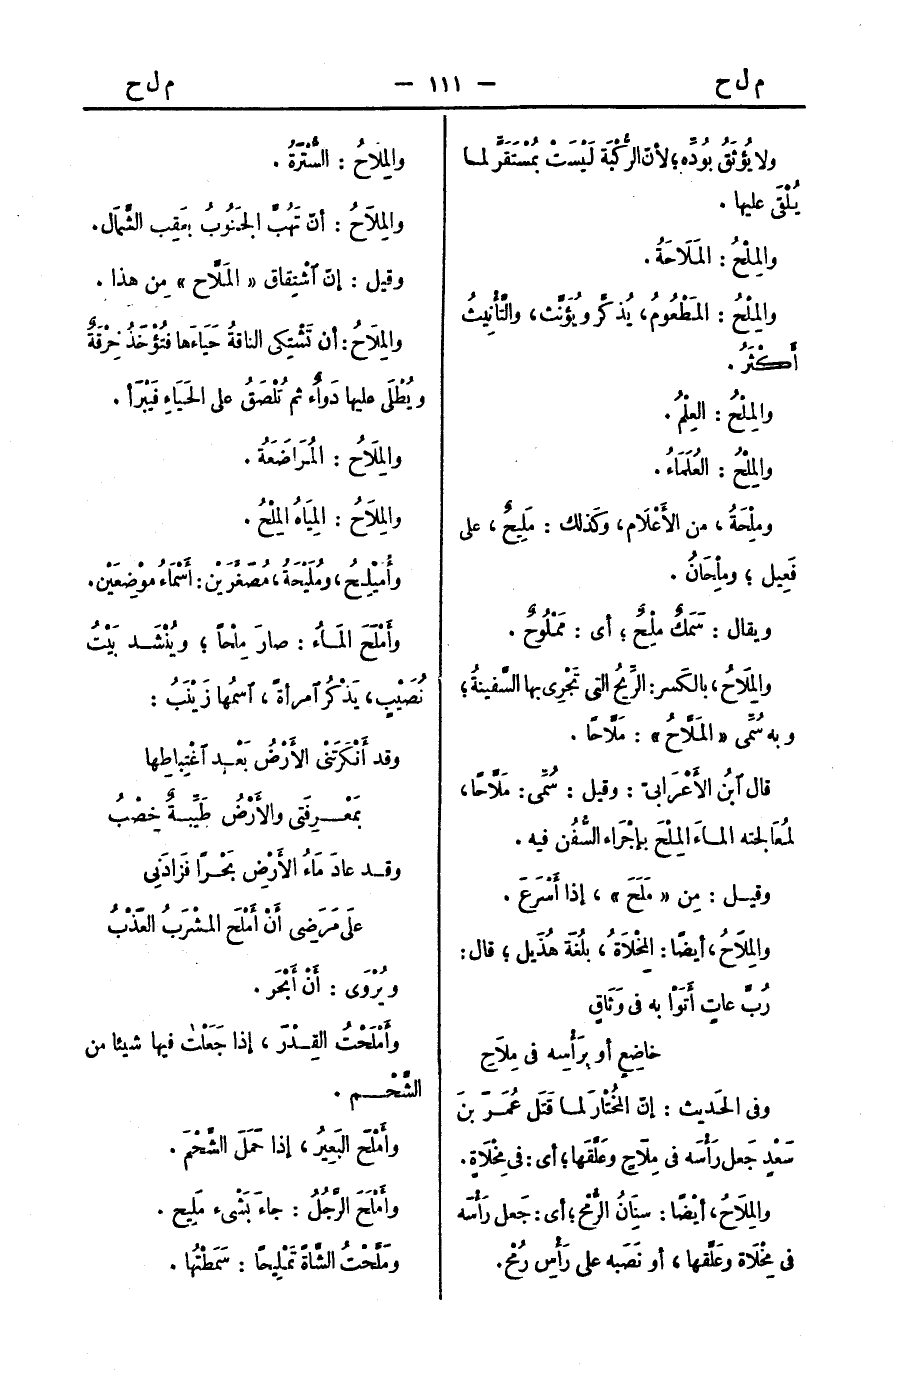 م ل ح
— ١١١ —
م ل ح
ولا يُوثَقُ بوُدِّه؛ لأنّ الرُّكْبَة لَيْسَتْ بمُسْتَقَرٍّ لمــا
يُلْقَى عليها .
والمِلْحُ : المَلَاحَةُ .
والمِلْحُ : المَطْعُومُ ، يُذكَّر ويُؤَنَّث ، والتَّأْنِيثُ
أَكْثَرُ .
والمِلْحُ : العِلْمُ .
والمِلْحُ : العُلَمَاءُ .
ومِلْحَةُ ، من الأَعْلَام ، وكَذلك : مَلِيحٌ ، على
فَعِيل ؛ ومِلْحَانُ .
ويقال : سَمَكٌ مِلْحٌ ؛ أى : مَمْلُوحٌ .
والمِلَاحُ ، بالكسر : الرِّيحُ التى تَجْرِى بها السَّفينةُ ؛
وبه سُمِّى « المَلَّاحُ » : مَلَّاحًا .
قال ٱبنُ الأَعْرَابىّ : وقيل : سُمِّى : مَلَّاحًا ،
لمُعَالجته المــاءَ المِلْحَ بإجْرَاء السُّفُن فيه .
وقيــل : مِن « مَلَحَ » ، إذا أَسْرَعَ .
والمِلَاحُ ، أيضًا : المِخْلَاةُ ، بلُغَة هُذَيل ؛ قال :
رُبَّ عاتٍ أَتَوْا به فى وَثَاقٍ
خاضِعٍ أو بِرَأْسِه فى مِلَاحِ
وفى الحَديث : إنّ المُخْتارَ لمــا قَتَل عُمَــرَ بنَ
سَعْدٍ جَعل رَأْسَه فى مِلَاحٍ وعَلَّقها ؛ أى : فى مِخْلاةٍ .
والمِلَاحُ ، أيضًا : سِنَانُ الرُّمْحِ ؛ أى : جَعل رَأْسَه
فى مِخْلَاة وعَلَّقها ، أو نَصَبه على رَأْسِ رُمْح .
والمِلَاحُ : السُّتْرَةُ .
والمِلَاحُ : أنْ تَهُبَّ الجَنُوبُ بعَقِب الشَّمَال .
وقيل : إنّ ٱشْتِقاق « المَلَّاح » مِن هذا .
والمِلَاحُ : أن تَشْتِكى الناقةُ حَيَاءَها فتُؤْخَذُ خِرْقَةٌ
ويُطْلَى عليها دَواءٌ ثم تُلْصَقُ على الحَيَاءِ فيَبْرَأ .
والمِلَاحُ : المُرَاضَعَةُ .
والمِلَاحُ : المِيَاهُ المِلْحُ .
وأُمَيْلِحُ ، ومُلَيْحَةُ ، مُصَغَّرَيْن : أَسْمَاءُ مَوْضِعَيْن .
وأَمْلَحَ المَــاءُ : صارَ مِلْحاً ؛ ويُنْشَــد بَيْتُ
نُصَيْبٍ ، يَذْكُر ٱمرأةً ، ٱسمُها زَيْنَبُ :
وقد أَنْكَرَتْنى الأَرْضُ بَعْــد ٱغْتِباطِها
بمَعْــرِفَتى والأَرْضُ طَيِّبــةٌ خِصْبُ
وقــد عادَ مَاءُ الأَرْضِ بَحْــرًا فزَادَنِى
علَى مَرَضِى أَنْ أَمْلَحَ المَشْرَبُ العَذْبُ
ويُرْوَى : أَنْ أَبْحَر .
وأَمْلَحْتُ القِــدْرَ ، إذا جَعَلْتَ فيها شيئا من
الشَّحْــــم .
وأَمْلَحَ البَعِيرُ ، إذا حَمَلَ الشَّحْمَ .
وأَمْلَحَ الرَّجُلُ : جاءَ بَشْىء مَلِيح .
ومَلَّحْتُ الشَّاةَ تَمْلِيحًا : سَمَطْتُها .